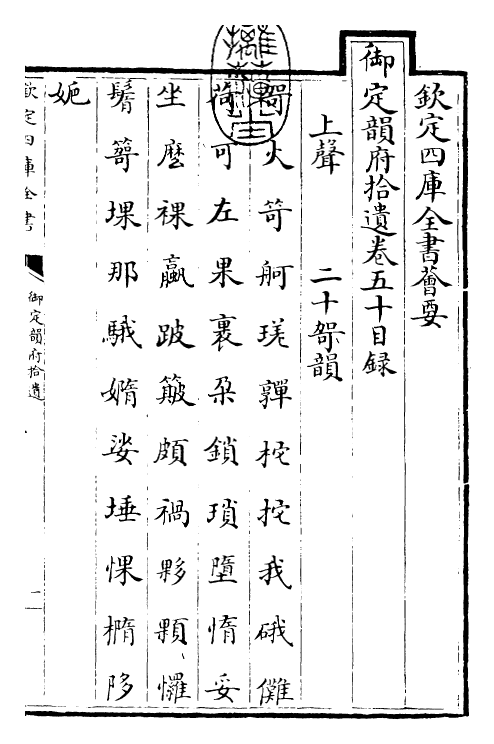 欽定四庫全書薈要
御定韻府拾遺卷五十目録
上聲 二十哿韻
哿火笴舸瑳嚲柁拕我硪儺
荷可左果裹朶鎖瑣墮惰妥
坐麼裸臝跛簸頗禍夥顆㦬
鬌䈷堁那騀嫷娑埵惈橢陊
㛂
欽定四庫全書
御定韻府拾遺
一